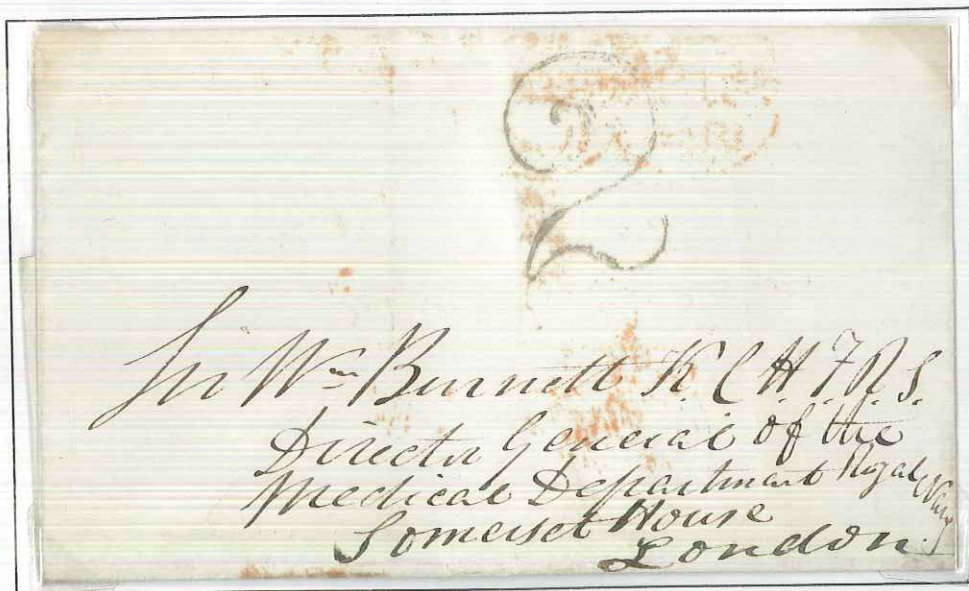 2
Sir Wm Burnett K.C.H. F.R.S.
Director General of the
Medical Department Royal Navy
Somerset House
London